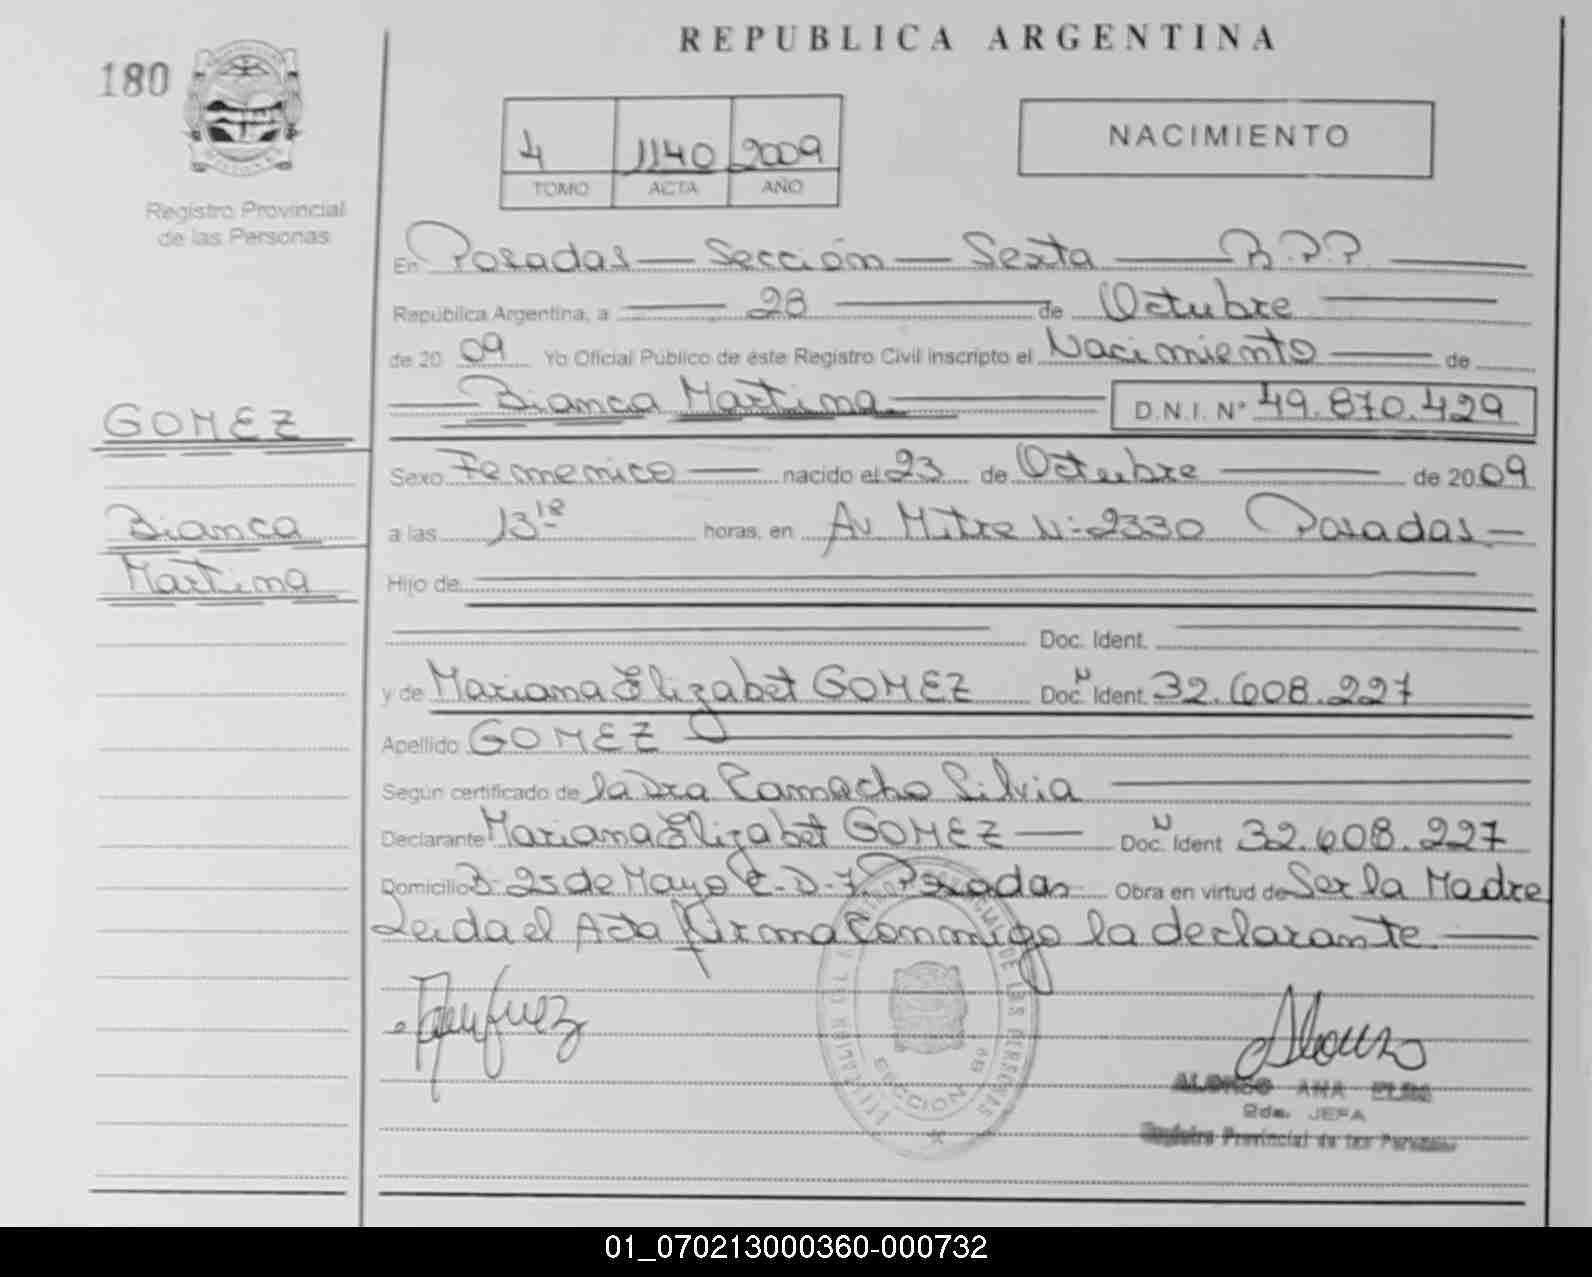 REPUBLICA ARGENTINA
180
4 1140 2009
TOMO ACTA AÑO
NACIMIENTO
Registro Provincial
de las Personas
En Posadas — Sección — Sexta — R.P.P.
República Argentina, a 28 de Octubre
de 20 09 Yo Oficial Público de éste Registro Civil inscripto el Nacimiento de
Bianca Martina D.N.I. Nº 49.870.429
GOMEZ
Bianca
Martina
Sexo Femenico nacido el 23 de Octubre de 2009
a las 13 18 horas, en Av Mitre Nº 2330 Posadas —
Hijo de
Doc. Ident.
y de Mariana Elizabet GOMEZ Doc. N Ident. 32.608.227
Apellido GOMEZ
Según certificado de la Dra Camacho Silvia
Declarante Mariana Elizabet GOMEZ — Doc. N Ident 32.608.227
Domicilio B 25 de Mayo C-D-7 Posadas Obra en virtud de Ser la Madre
Leida el Acta firma Conmigo la declarante
SECCION 6ª
ALONSO ANA ELBA
2da. JEFA
Registro Provincial de las Personas
01_070213000360-000732